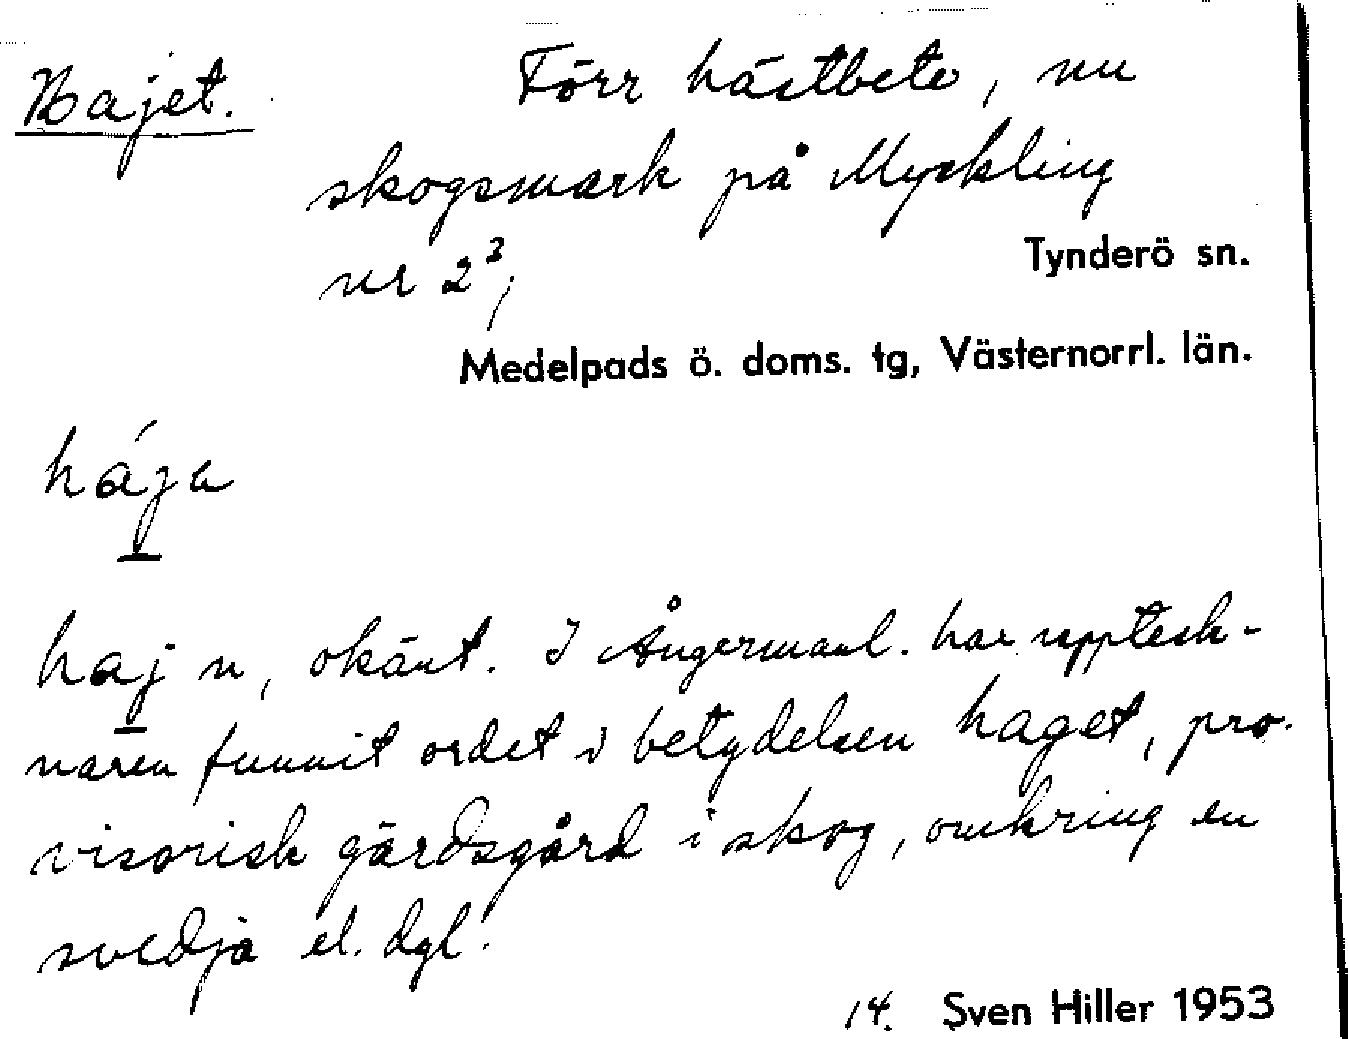 Hajet. Förr hästbete, nu
skogsmark på Myckling
nr 2³,
Tynderö sn.
Medelpads ö. doms. tg, Västernorrl. län.
hája
haj n, okänt. I Ångermanl. har uppteck-
naren funnit ordet i betydelsen haget, pro-
visorisk gärdsgård i skog, omkring en
svedja el. dgl.
14. Sven Hiller 1953